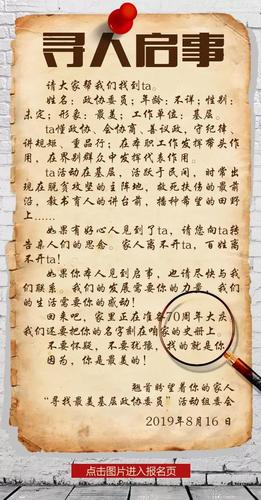 寻人启事
请大家帮我们找到ta。
姓名：政协委员；年龄：不详；性别：
未定；形象：最美；工作单位：基层。
ta懂政协、会协商、善议政，守纪律、
讲规矩、重品行；在本职工作发挥带头作
用，在界别群众中发挥代表作用。
ta活动在基层，活跃于民间，时常出
现在脱贫攻坚的主阵地，救死扶伤的最前
沿，教书育人的讲台前，播种希望的田野
上……
如果有好心人见到了ta，请您向ta转
告亲人们的思念。家人离不开ta，百姓离
不开ta！
如果你本人见到启事，也请尽快与我
们联系。我们的发展需要你的力量，我们
的生活需要你的感动！
回来吧，家里正在准备70周年大庆
我们还要把你的名字刻在咱家的史册上。
不要怀疑，不要犹豫，找的就是你
因为，你是最美的！
翘首盼望着你的家人
“寻找最美基层政协委员”活动组委会
2019年8月16日
点击图片进入报名页